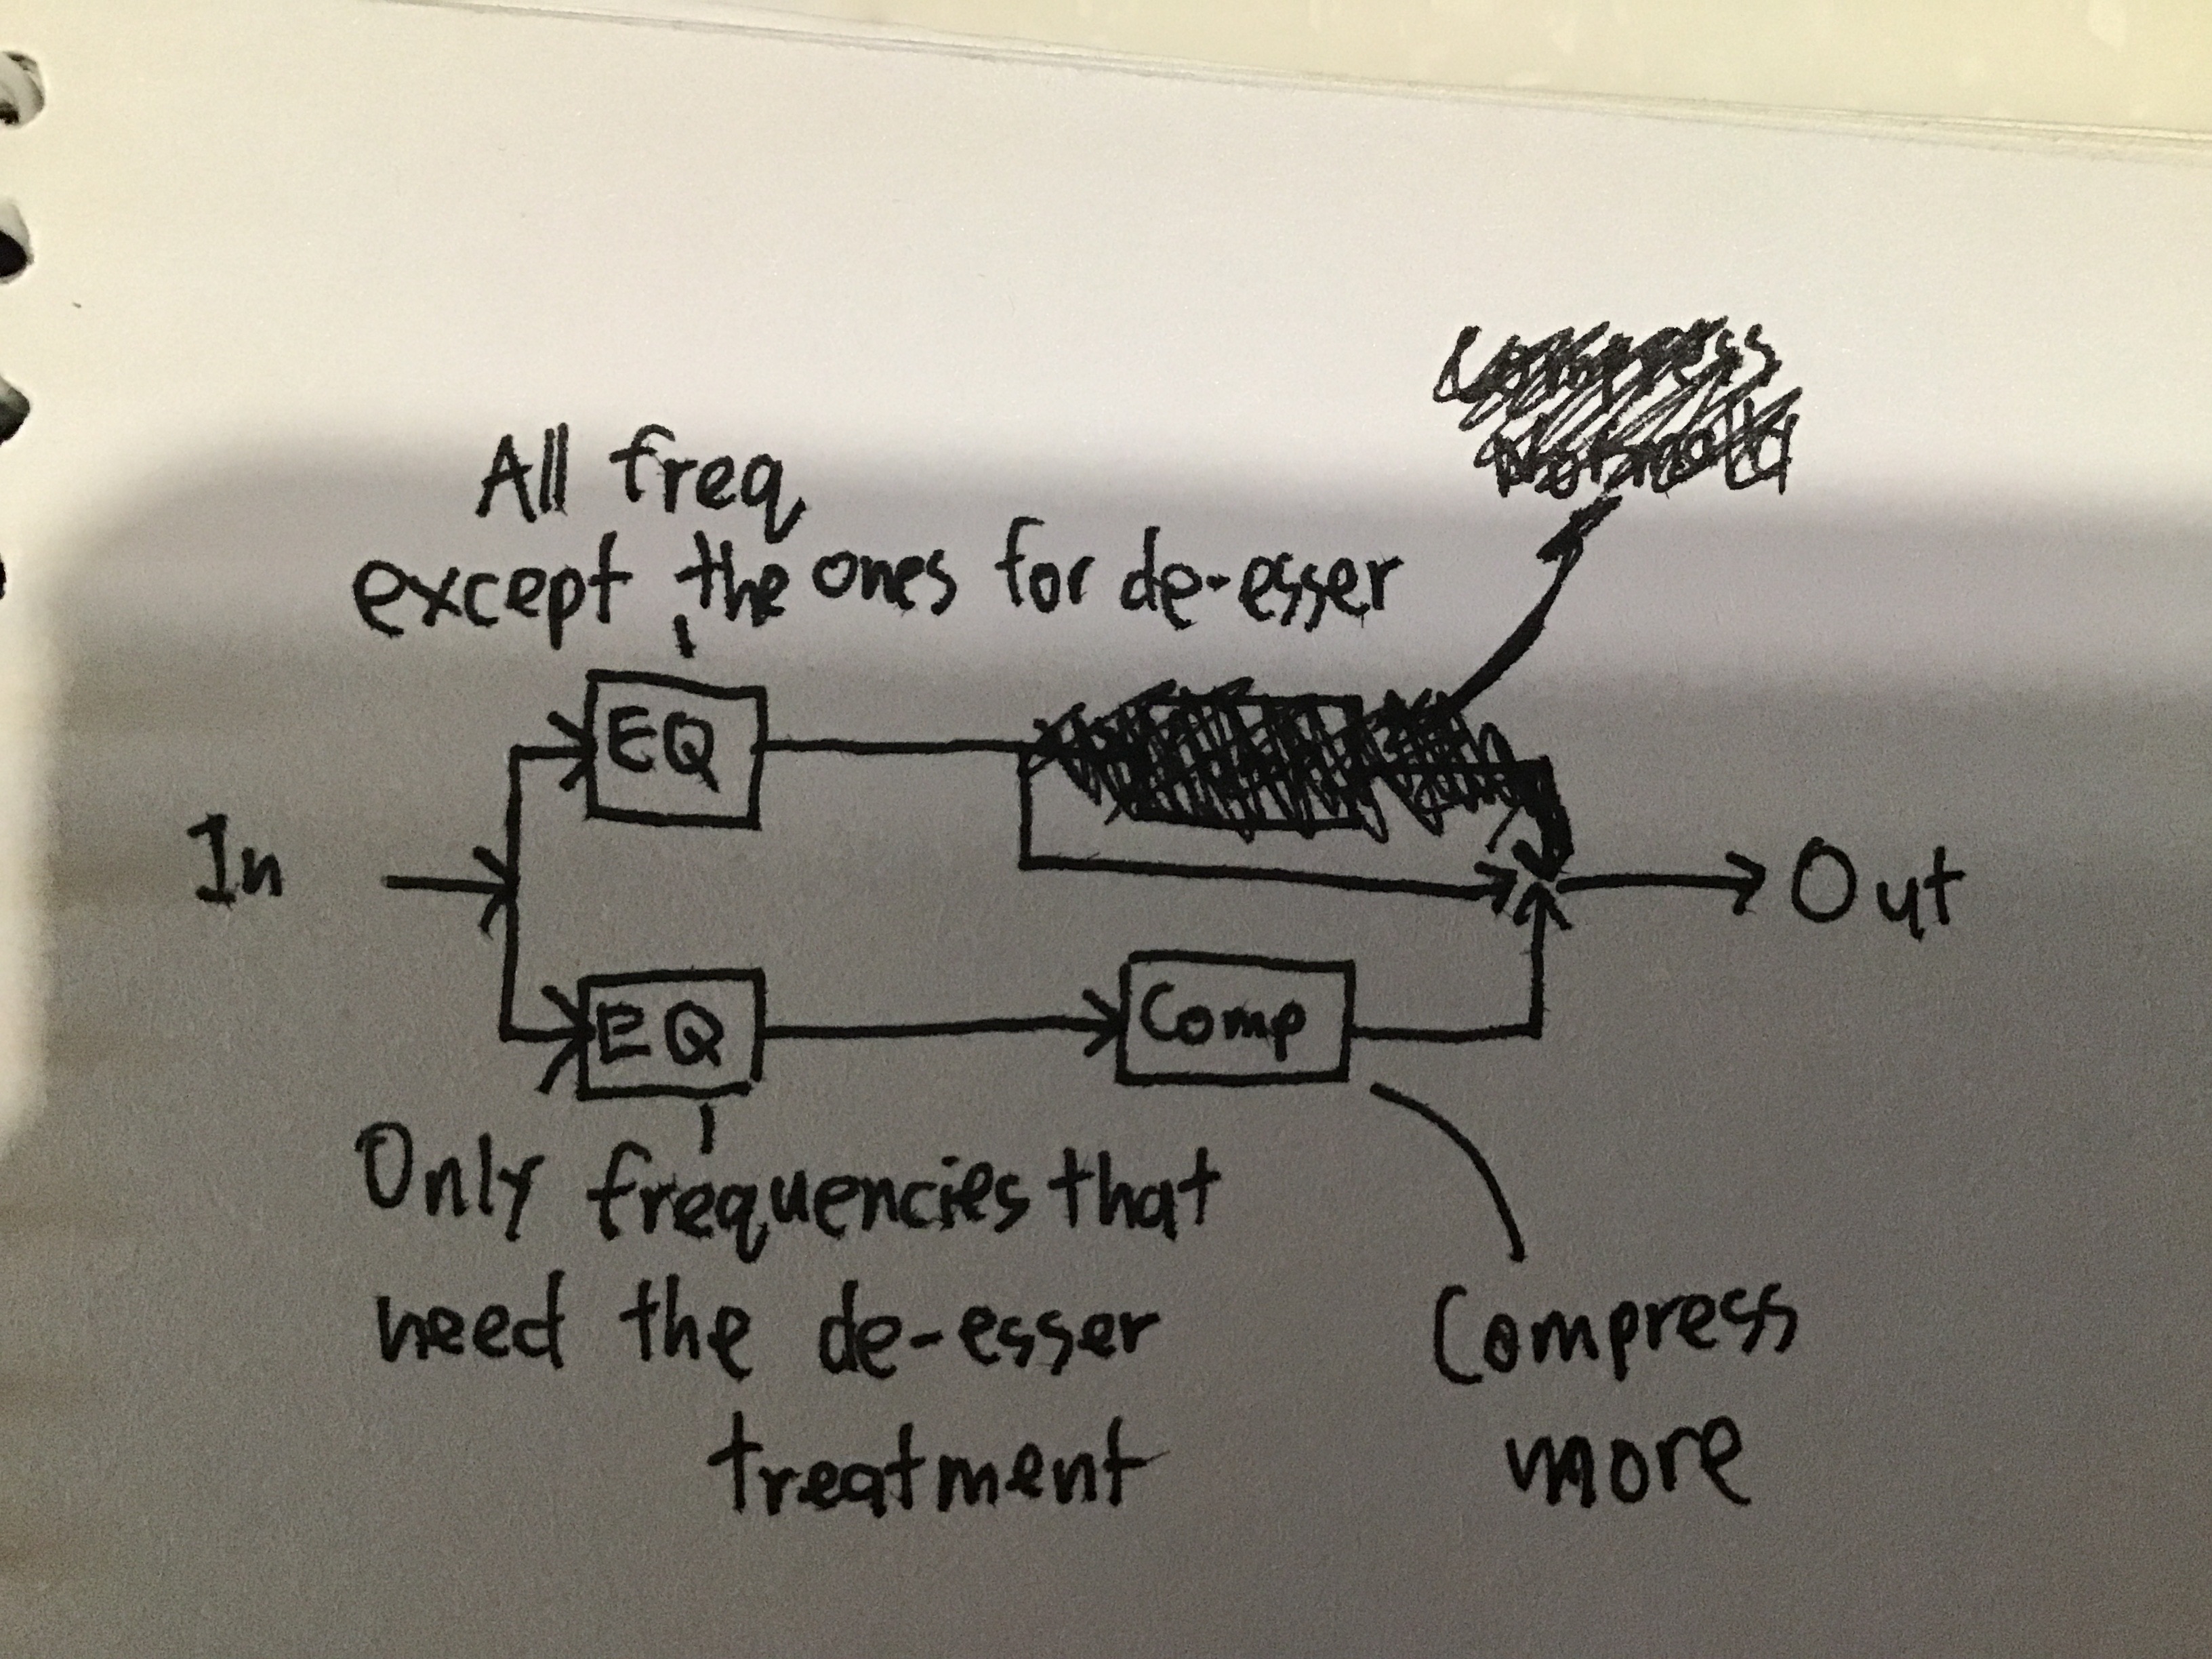 All freq
except the ones for de-esser
EQ
In
Out
EQ
Comp
Only frequencies that
need the de-esser
treatment
Compress
more